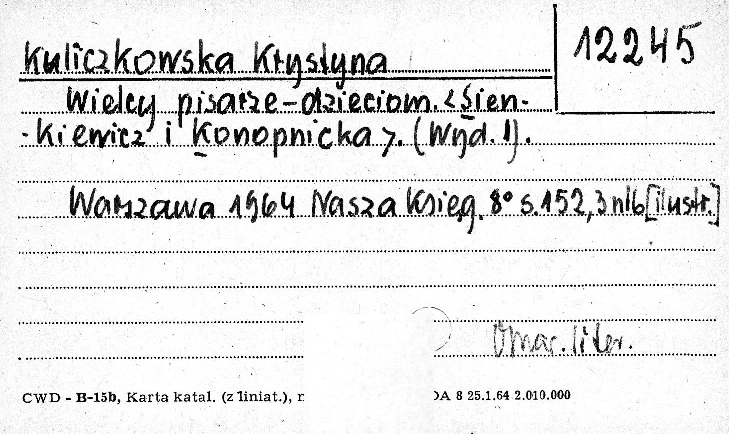 12245
Kuliczkowska Krystyna
Wielcy pisarze-dzieciom. <Sien-
-kiewicz i Konopnicka>. (Wyd. 1).
Warszawa 1964 Nasza Księg. 8° s.152, 3 nlb [ilustr.]
Omac. liter.
CWD - B-15b, Karta katal. (z liniat.), DA 8 25.1.64 2.010.000